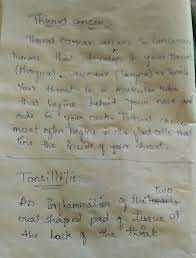 Throat cancer
Throat cancer refers to cancerous
tumors that develop in your throat
(Pharynx), voice box (larynx) or tonsils
Your throat is a muscular tube
that begins behind your nose and
ends in your neck. Throat cancer
most often begins in the flat cells that
line the inside of your throat.
Tonsillitis:
two
An inflammation of the
oval shaped pad of tissue at
the back of the throat